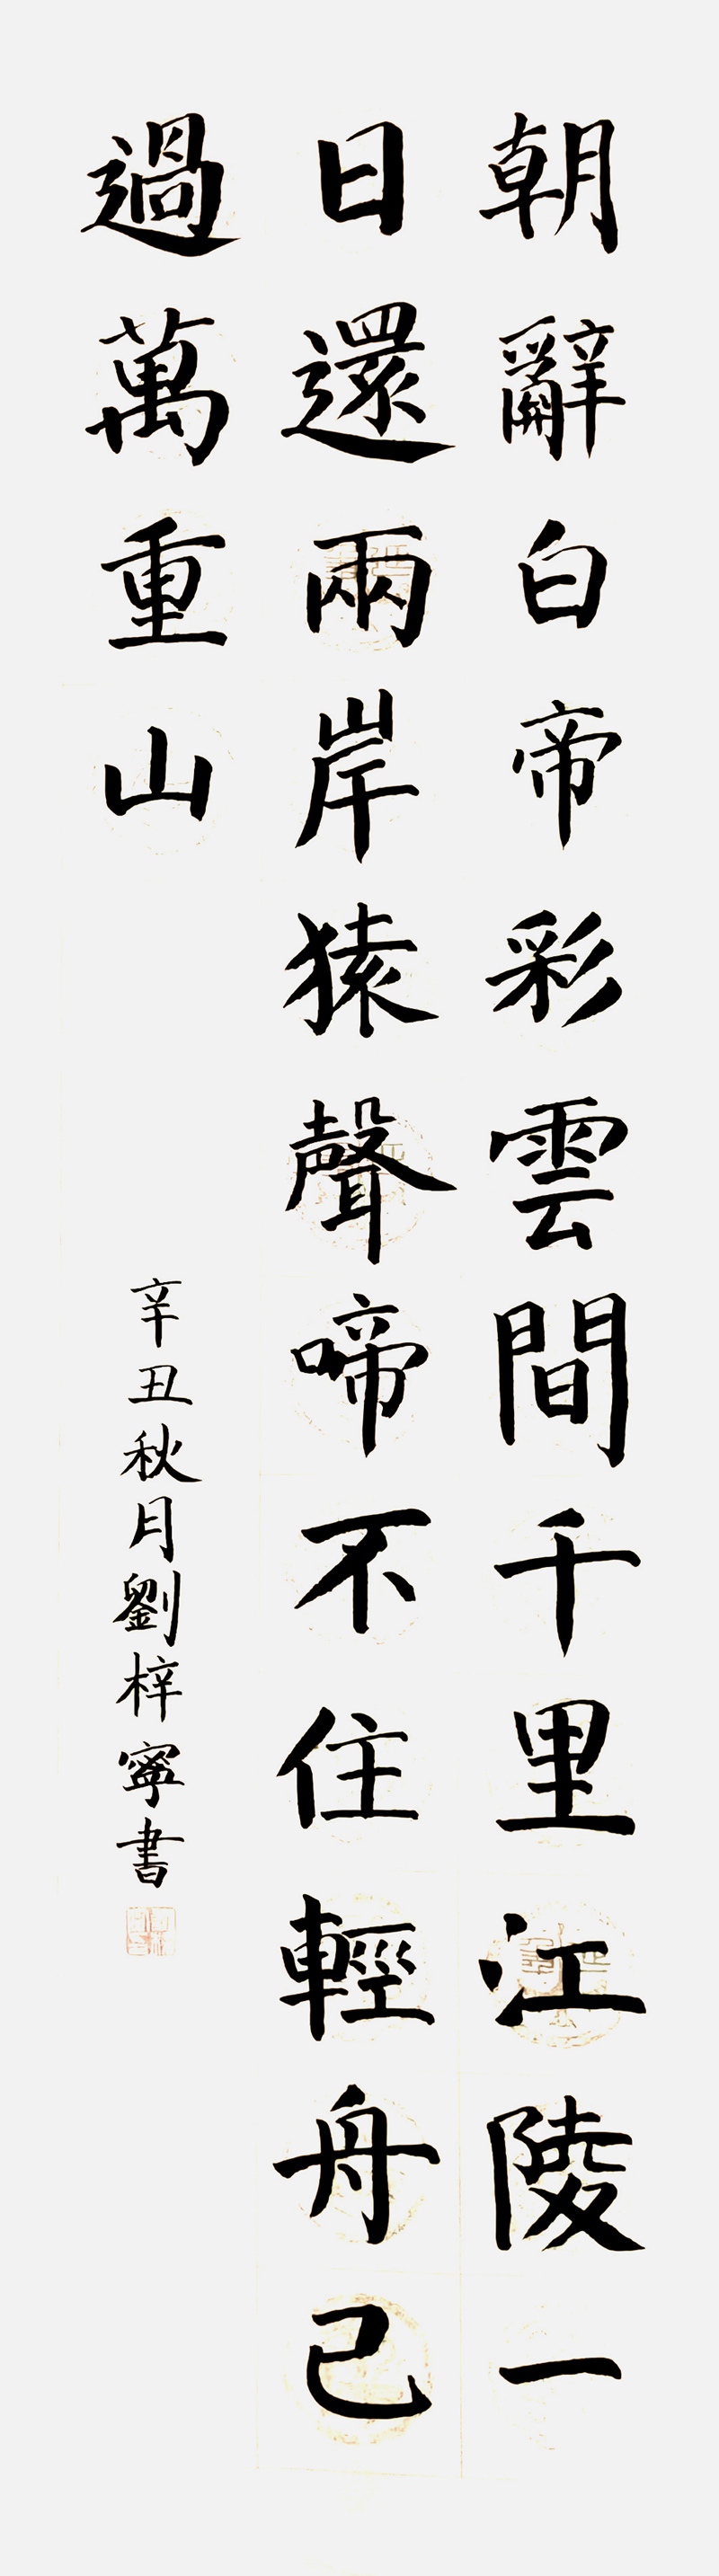 朝辭白帝彩雲間千里江陵一
日還兩岸猿聲啼不住輕舟已
過萬重山
辛丑秋月劉梓寧書